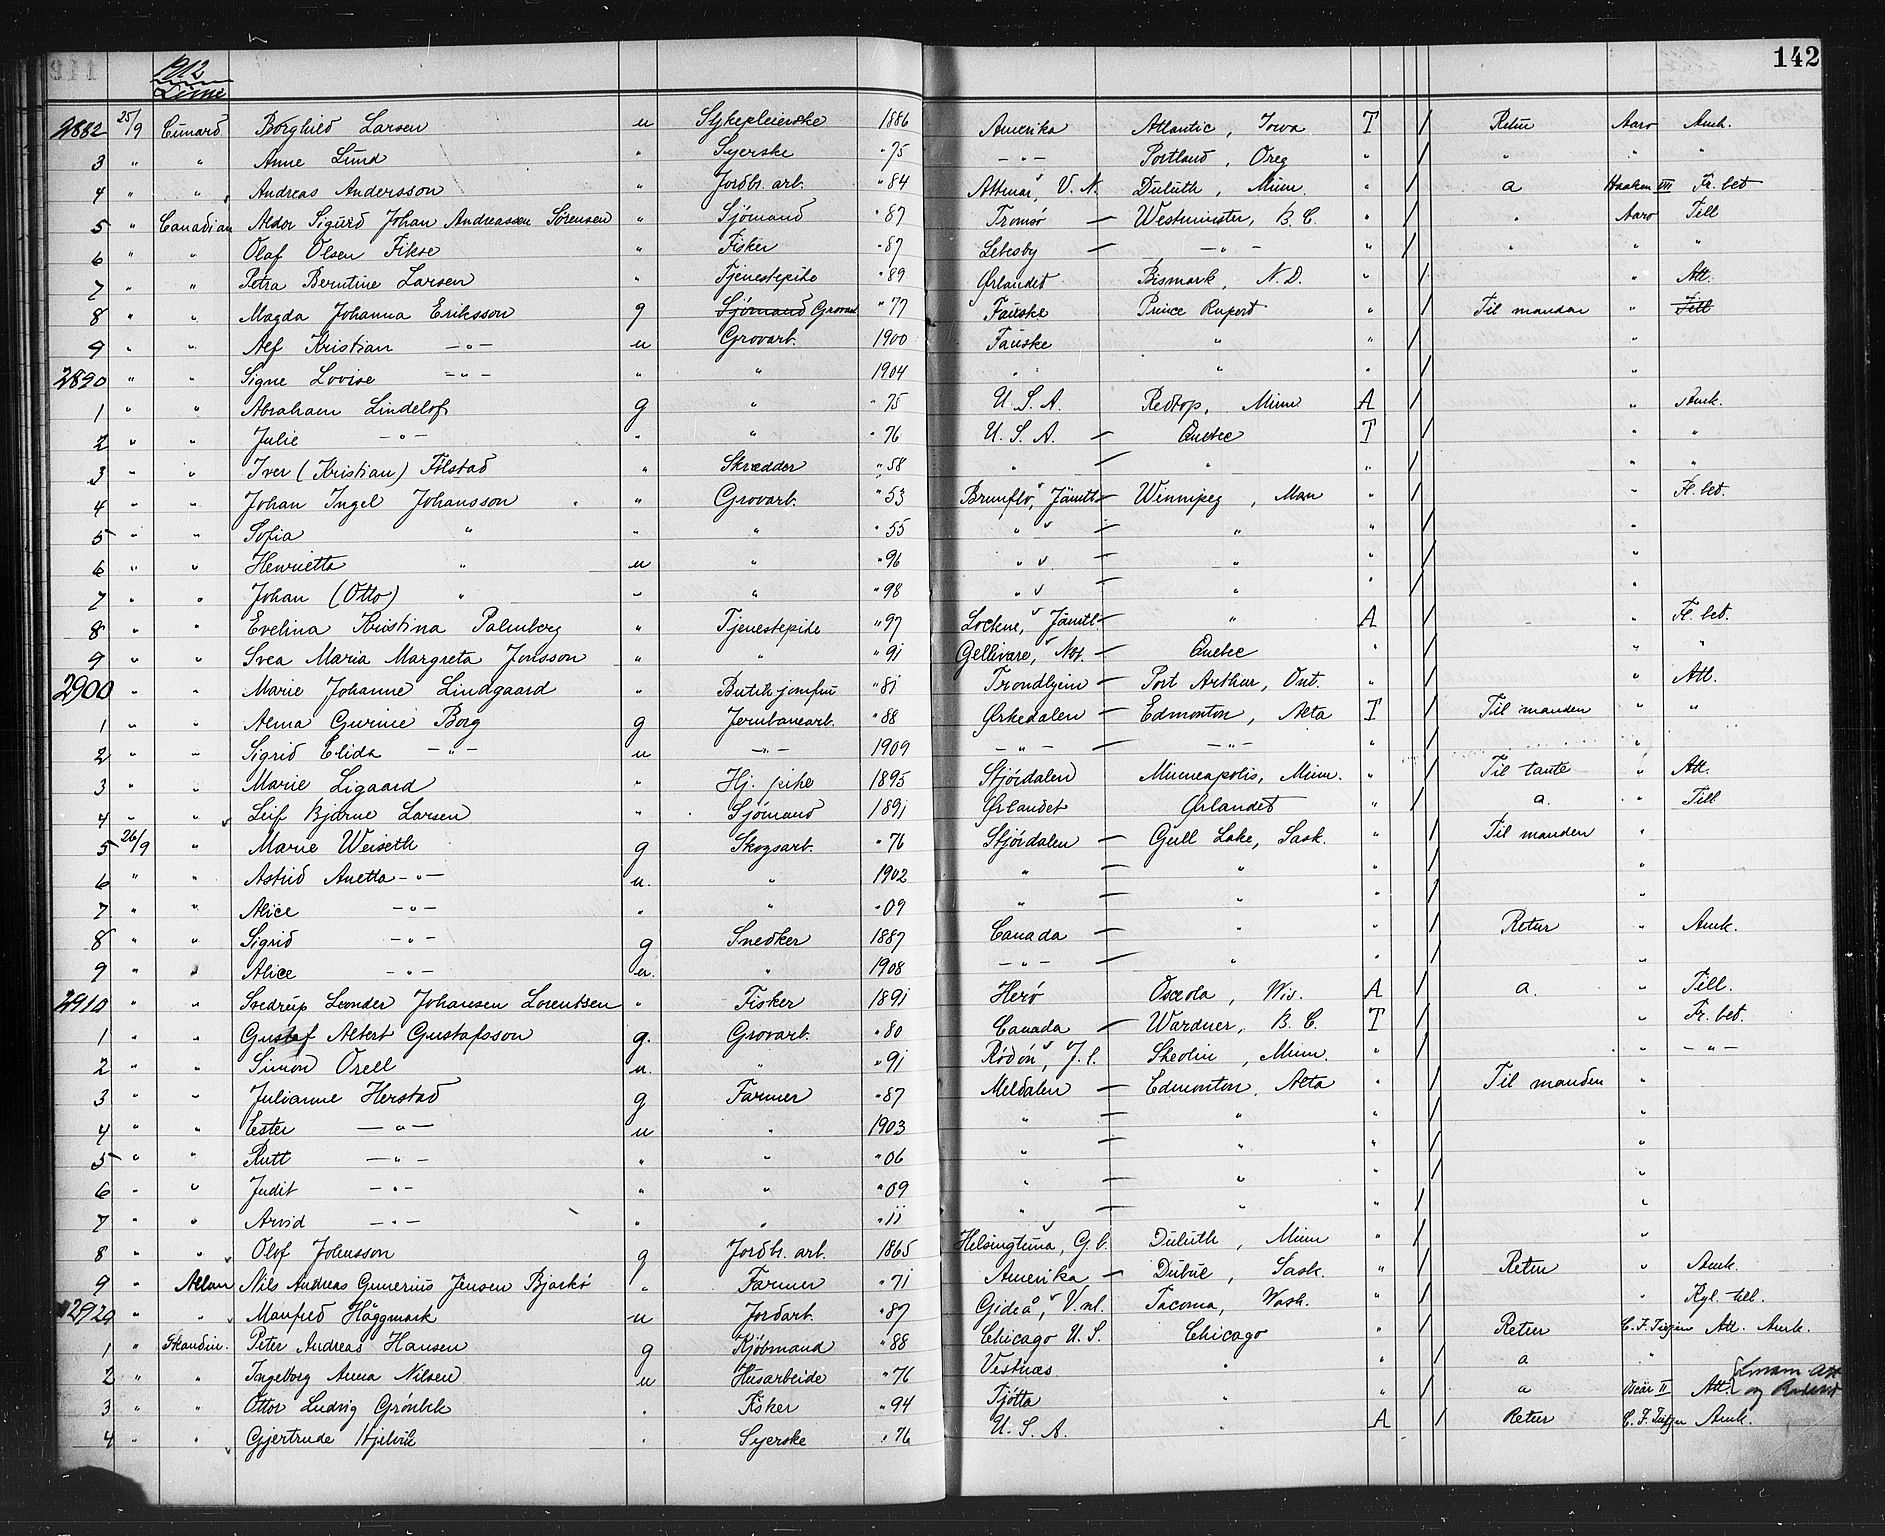 142
1912
Linie
2882 25/9 Cunard Borghild Larsen u Sykepleierske 1886 Amerika Atlantic, Iowa T / Retur Aaro Amk.
3 " " Anne Lund " Syerske " 75 - " - Portland, Oreg " / " " "
4 " " Andreas Andersson " Jordbr. arb. " 84 Attmar, V. N. Duluth, Minn " / a Haakon VII Fr. bet
5 " Canadian Aldor Sigurd Johan Andreassen Sørensen " Sjømand " 87 Tromsø — Westminster, B. C. " / " Aaro Till
6 " " Olaf Olsen Fikse " Fisker " 87 Lebesby — - " - " / " " "
7 " " Petra Berntine Larsen " Tjenestepike " 89 Ørlandet Bismark, N. D. " / " Att.
8 " " Magda Johanna Eriksson g Sjømand Grovarb " 77 Fauske Prince Rupert " / Til mandan " Till
9 " " Alf Kristian - " - u Grovarb. 1900 Fauske " " / "
2890 " " Signe Lovise - " - " " 1904 " " " / "
1 " " Abraham Lindelof g " " 75 U. S. A. Redtop, Minn A / " Amk.
2 " " Julie - " - " " " 76 U. S. A. — Quebec T / " "
3 " " Iver (Kristian) Følstad " Skrædder " 58 " — " " / " "
4 " " Johan Ingel Johansson " Grovarb. " 53 Brunflo, Jämtl — Winnipeg, Man " / " Fr. bet.
5 " " Sofia " " " " 55 " — " " / "
6 " " Henrietta " u " " 96 " — " " / "
7 " " Johan (Otto) " " " " 98 " — " " / "
8 " " Evelina Kristina Palmberg " Tjenestepike " 97 Lockne, Jämtl. " A / " Fr. bet.
9 " " Svea Maria Margreta Jonsson " " " 91 Gellivare, Nor. — Quebec " / " "
2900 " " Marie Johanne Lindgaard " Butikjomfru " 81 Trondhjem — Port Arthur, Ont. " / " Att.
1 " " Alma Gurine Borg g Jernbanearb. " 88 Ørkedalen — Edmonton, Alta T / Til manden " "
2 " " Sigrid Elida - " - u - " - 1909 - " - — - " - " / "
3 " " Marie Ligaard " Hj. pike 1895 Stjørdalen Minneapolis, Minn. " / Til tante " Att.
4 " " Leif Bjarne Larsen " Sjømand 1891 Ørlandet Ørlandet " / a. " Till
5 26/9 " Marie Weiseth g Skogsarb. " 76 Stjørdalen — Gull Lake, Sask. " / Til manden "
6 " " Astrid Anetta - " - u. " 1902 " — " " / "
7 " " Alice - " - " " " 09 " — " " / "
8 " " Sigrid - " - g Snedker 1887 Canada — " " / Retur " Amk.
9 " " Alice - " - u. " 1908 - " - — " " / "
2910 " " Svedrup Leonder Johansen Lorentsen " Fisker 1891 Herø Osceola, Wis. A / a. " Till.
1 " " Gustaf Albert Gustafsson g. Grovarb. " 80 Canada — Wardner, B. C. T / " Fr. bet.
2 " " Simon Orell u. " " 91 Rödön, J. l. Minn. " / " - " -
3 " " Julianne Herstad g Farmer " 87 Meldalen — Edmonton, Alta " / Til manden "
4 " " Ester - " - u " 1903 " — " " / "
5 " " Rutt - " - " " " 06 " — " " / "
6 " " Judit - " - " " " 09 " — " " / "
7 " " Arvid - " - " " " 11 " — " " / "
8 " " Olof Johnsson g Jordbr. arb. 1865 Helsingtuna, G. b. Duluth, Minn " / "
9 " Allan Nils Andreas Gunerius Jensen Bjarkø " Farmer " 71 Amerika — Sask. " / Retur " Amk.
2920 " " Manfred Häggmark u Jordarb. " 87 Gideå, V. nl. Tacoma, Wash. " / " Kgl. till.
1 " Skandin. Peter Andreas Hansen g Kjøbmand " 88 Chicago U. S. Chicago " / Retur C. F. Tietgen Att. Amk.
2 " " Ingeborg Anna Nilsen u Husarbeide " 76 Vestnæs " " / a "
3 " " Ottor Ludvig Grönbek " Fisker " 94 Tjøtta " " / a Oscar II Att. og
4 " " Gjertrude Hjelvik " Syerske " 76 U. S. A. " A / Retur C. F. Tietgen Amk.